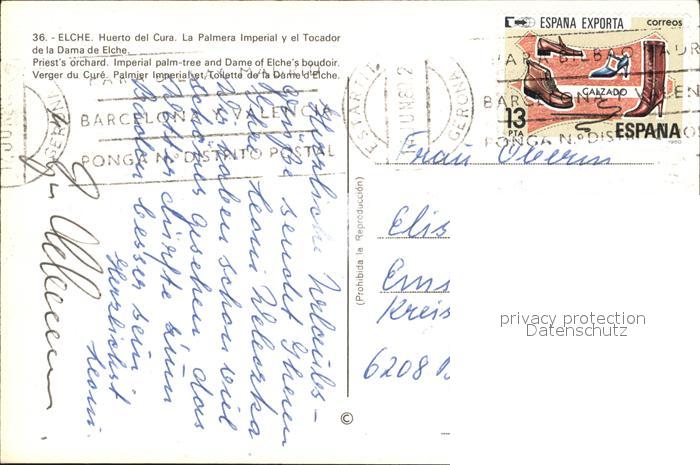 36. - ELCHE. Huerto del Cura. La Palmera Imperial y el Tocador
de la Dama de Elche.
Priest's orchard. Imperial palm-tree and Dame of Elche's boudoir.
Verger du Curé. Palmier Imperial et Toilette de la Dame d'Elche.
BARCELONA VALENCIA
PONGA N.º DISTINTO POSTAL
ESTARTIT
GERONA
JUN 82
ESPAÑA EXPORTA correos
CALZADO
13
PTA
ESPAÑA
1980
BARCELONA
PONGA N.º
Herzliche Urlaubs-
grüße sendet Ihnen
Ihre Leoni
Wir haben schon viel
schönes gesehen das
Wetter dürfte zum
Baden besser sein
Herzlichst
Leoni
(Prohibida la Reproducción)
©
Frau Oberin
Elis
Ems
Kreis
6208
privacy protection
Datenschutz